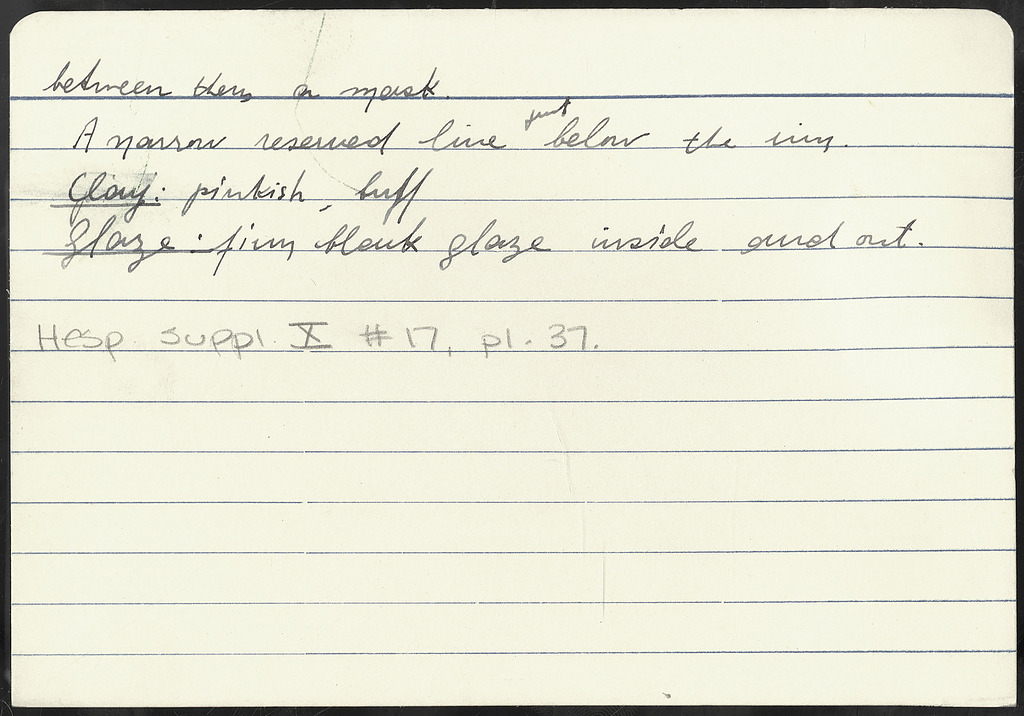 between them a mask.
A narrow reserved line just below the rim.
Clay: pinkish, buff
Glaze: firm black glaze inside and out.
Hesp. Suppl. X #17, pl. 37.